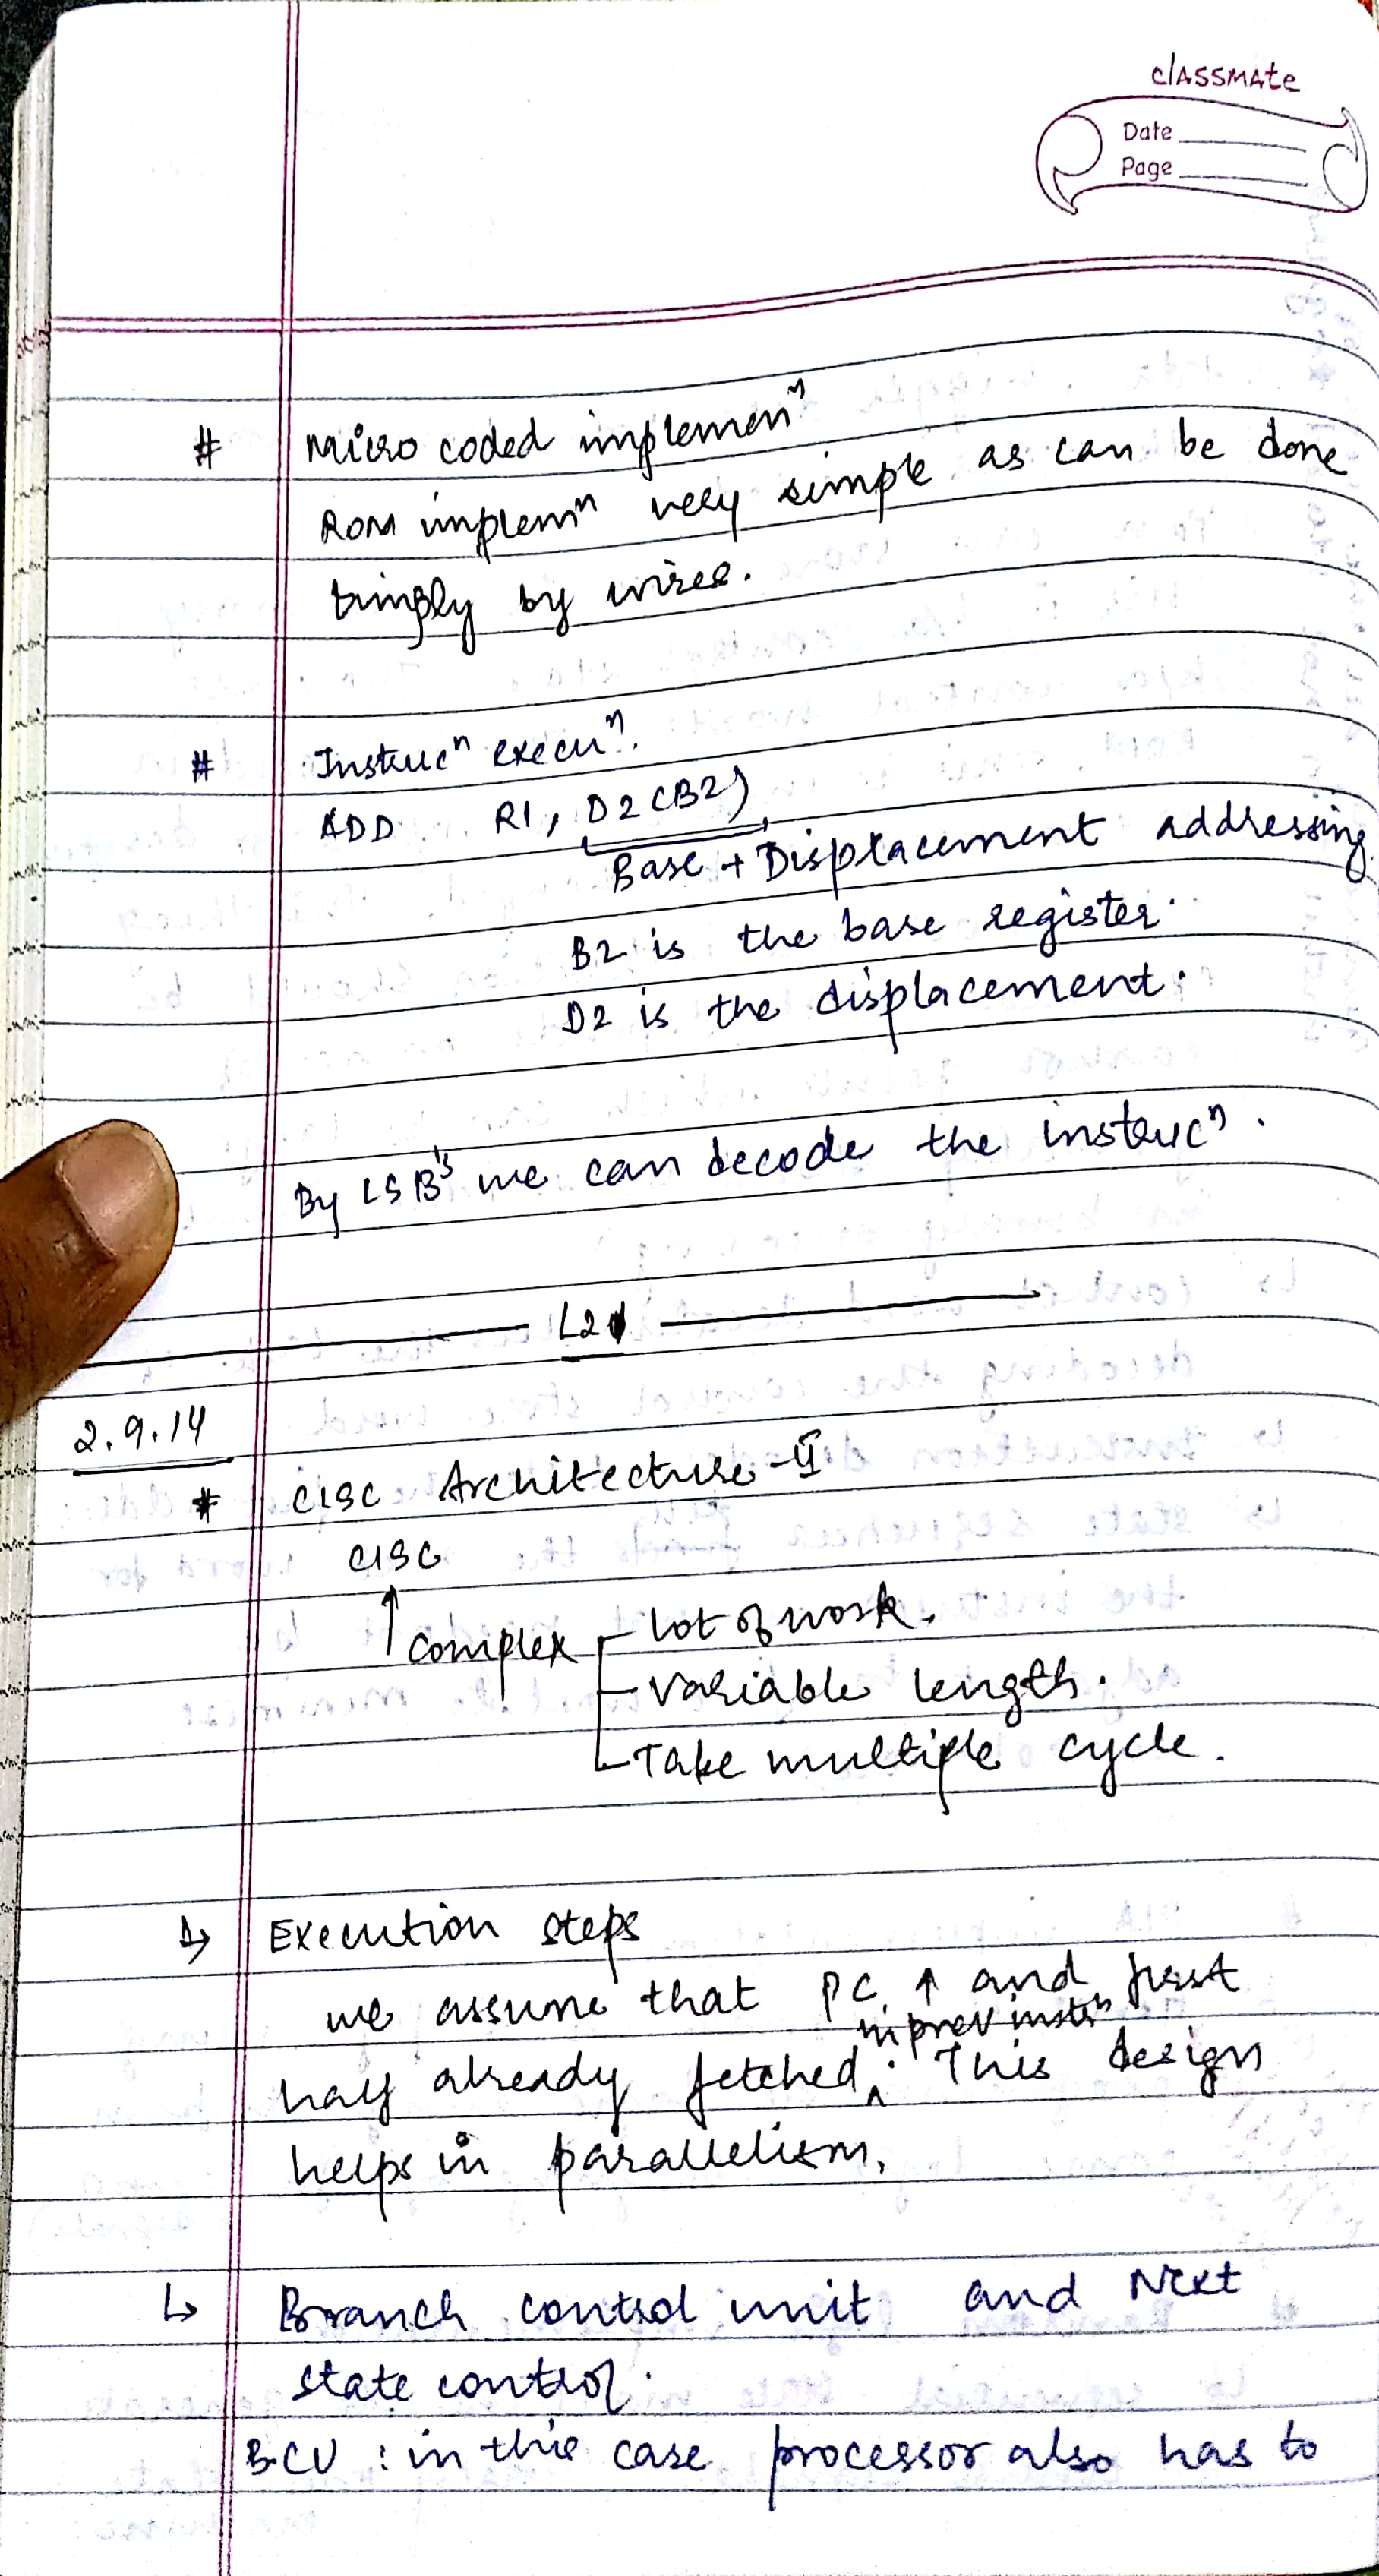 classmate
Date
Page
# Micro coded implemenⁿ
ROM implemⁿ very simple as can be done
simply by wires.
# Instrucⁿ execuⁿ.
ADD R1, D2(B2)
Base + Displacement addressing
B2 is the base register.
D2 is the displacement.
By LSB's we can decode the instrucⁿ.
L21
2.9.14
# CISC Architecture-II
CISC
↑ complex
- lot of work.
- Variable length.
- Take multiple cycle.
↳ Execution steps
we assume that PC ↑ and first
in prev instrⁿ
half already fetched ^. This design
helps in parallelism.
↳ Branch control unit and Next
state control.
BCU : in this case processor also has to